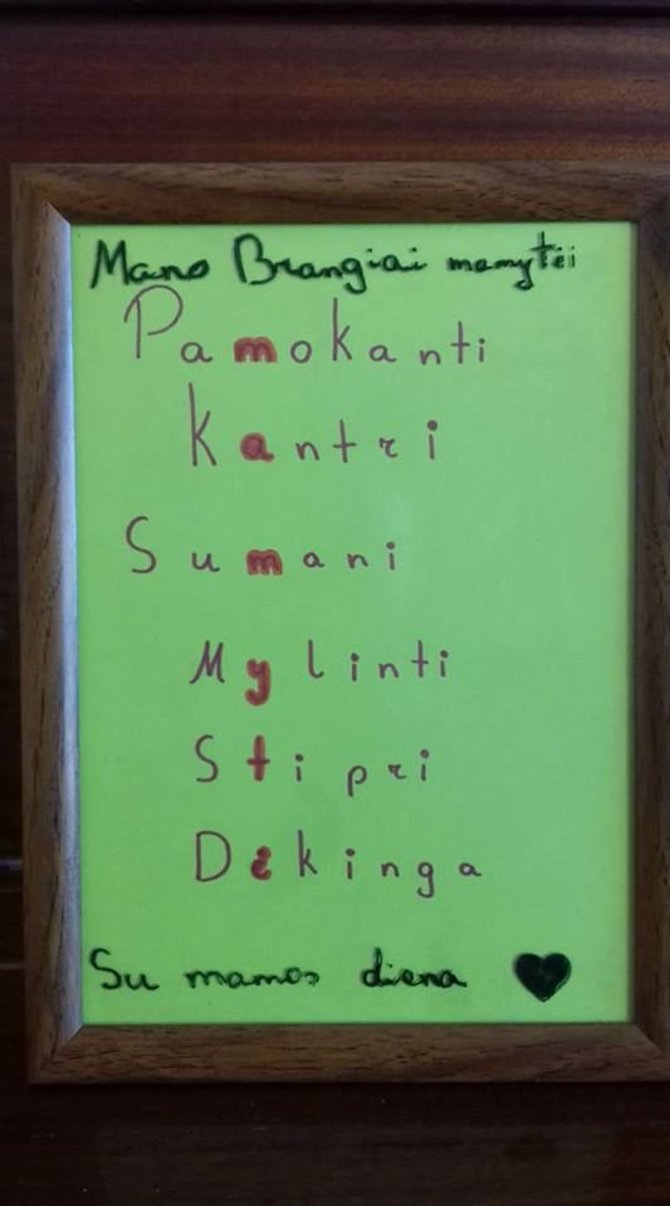 Mano Brangiai mamytėi
Pamokanti
Kantri
Sumani
Mylinti
Stipri
Dėkinga
Su mamos diena